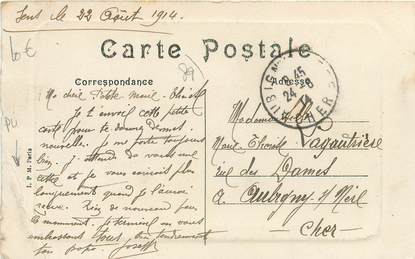 Sens le 22 Août 1914.
10 €
Carte Postale
Correspondance
Adresse
Ma chère petite Marie-Thérèse
Je t'envoie cette petite
carte pour te donner de mes
nouvelle. Je me porte toujours
bien, j'attend de vous une
lettre et je vous
longuement quand je l'aurai
reçue. Rien de nouveau pour
le moment. Je termine en vous
embrassant tous bien tendrement
ton papa. Joseph
AUBIGNY
45
24-8
CHER
Mademoiselle
Marie Thérèse Lagautrière
rue des Dames
à Aubigny s/ Nère
Cher
I. P. M. Paris